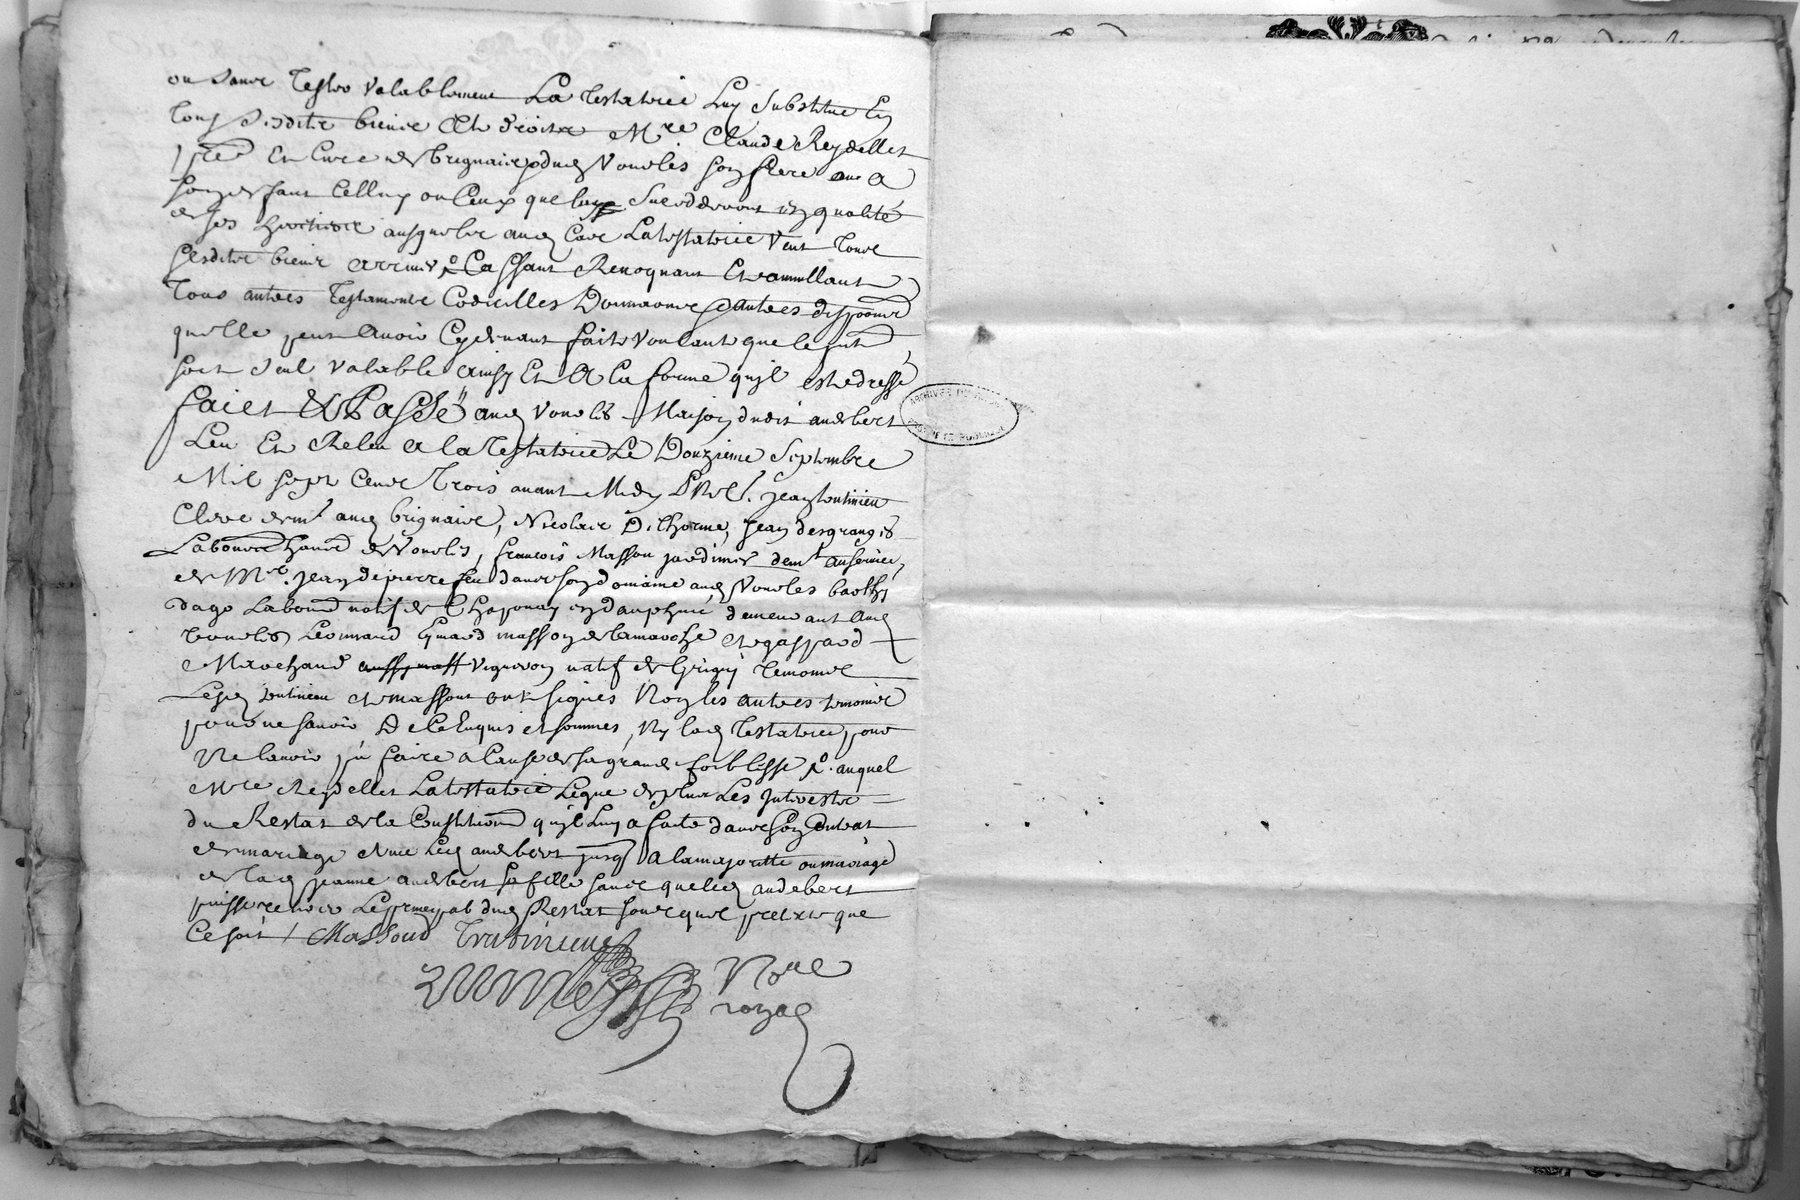 ou sans tester valablement La testatrice Luy substitue En
tous sesdits biens Et droits Mre Claude Reydellet
ptre Et Curé de brignais du Vourles son frere ou a
son deffaut Celluy ou Ceux que luy succederont en qualité
de ses heritiers ausquels aud Cas La testatrice Veut tous
sesdits biens arriver Cassant Revoquant Et annullant
Tous autres Testaments Codicilles Donnaons autres disposons
quelle peut Avoir Cydevant faits voulant que le pnt
soit seul valable ainsy Et A la forme quil est dressé
faict Et Passé aud Vourles Maison dudit audebert
Leu Et Releu A la Testatrice Le Douzieme Septembre
Mil sept Cents Trois avant Midy Pnts. jean
Clerc demt aud brignais, Nicolas Delhorme, jean desgranges
Laboureur hant de Vourles, francois Masson jardinier demt au service
de Mre. jean depierre dans son domaine aud Vourles barthy
dago Labour natif de Chaponay en dauphiné demeurant Aud
vourles Leonnard masson de lamarche et gaspard
Marchand aussy mass Vigneron natif de Grigny temoins
Lesd et masson ont signés Non les autres temoins
pour ne savoir De Ce Enquis et sommes, Ny lad Testatrice pour
Ne lavoir pû faire a Cause de sa grande foiblesse. auquel
Mre Reydellet La testatrice Legue de plus Les Interests
du Restat de la Constitution quil Luy a faite dans son Contrat
de mariage Avec Led audebert jusq A la majorite ou mariage
de lad jeanne audebert sa fille sans que led audebert
puisse retenir Le prncipal dud Restat sous quel pretexte que
Ce soit / Masson
Nore
royal